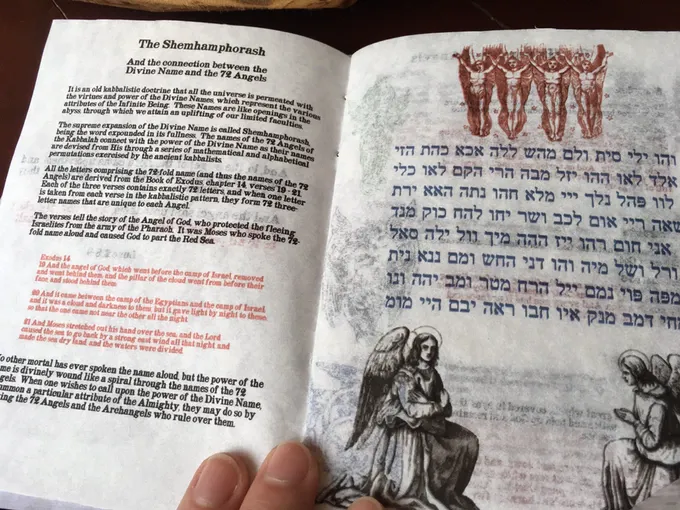 The Shemhamphorash
And the connection between the
Divine Name and the 72 Angels
It is an old kabbalistic doctrine that all the universe is permeated with
the virtues and power of the Divine Names, which represent the various
attributes of the Infinite Being. These Names are like openings in the
abyss, through which we attain an uplifting of our limited faculties.
The supreme expansion of the Divine Name is called Shemhamphorash,
being the word expounded in its fullness. The names of the 72 Angels of
the Kabbalah connect with the power of the Divine Name as their names
are devised from His through a series of mathematical and alphabetical
permutations exercised by the ancient kabbalists.
All the letters comprising the 72-fold name (and thus the names of the 72
Angels) are derived from the Book of Exodus, chapter 14, verses 19 - 21.
Each of the three verses contains exactly 72 letters, and when one letter
is taken from each verse in the kabbalistic pattern, they form 72 three-
letter names that are unique to each Angel.
The verses tell the story of the Angel of God, who protected the fleeing
Israelites from the army of the Pharaoh. It was Moses who spoke the 72-
fold name aloud and caused God to part the Red Sea.
Exodus 14
19 And the angel of God, which went before the camp of Israel, removed
and went behind them; and the pillar of the cloud went from before their
face, and stood behind them
20 And it came between the camp of the Egyptians and the camp of Israel;
and it was a cloud and darkness to them, but it gave light by night to these:
so that the one came not near the other all the night.
21 And Moses stretched out his hand over the sea; and the Lord
caused the sea to go back by a strong east wind all that night, and
made the sea dry land, and the waters were divided.
o other mortal has ever spoken the name aloud, but the power of the
me is divinely wound like a spiral through the names of the 72
gels. When one wishes to call upon the power of the Divine Name,
ommon a particular attribute of the Almighty, they may do so by
ing the 72 Angels and the Archangels who rule over them.
והו ילי סית ולם מהש ללה אכא כהת הזי
אלד לאו ההו יזל מבה הרי הקם לאו כלי
לוו פהל נלך ייי מלא חהו נתה האא ירת
שאה ריי אום לכב ושר יחו להח כוק מנד
אני חום רהו ייז ההה מיך וול ילה סאל
ורל ושל מיה והו דני החש ומם ננא נית
מפה פוי נמם ייל הרח מטר ומב יהה ונו
מחי דמב מנק איו חבו ראה יבם היי מומ